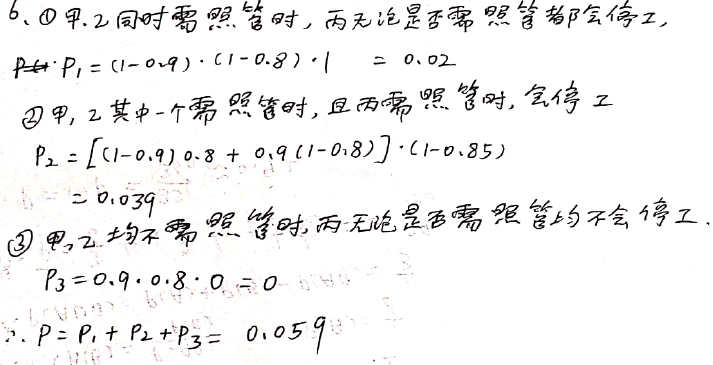 6、①甲.乙同时需照管时,丙无论是否需照管都会停工,
P₁=(1-0.9)·(1-0.8)·1 = 0.02
②甲,乙其中一个需照管时,且丙需照管时,会停工
P₂=[(1-0.9)0.8+0.9(1-0.8)]·(1-0.85)
=0.039
③甲,乙均不需照管时,丙无论是否需照管均不会停工.
P₃=0.9·0.8·0=0
∴P=P₁+P₂+P₃=0.059